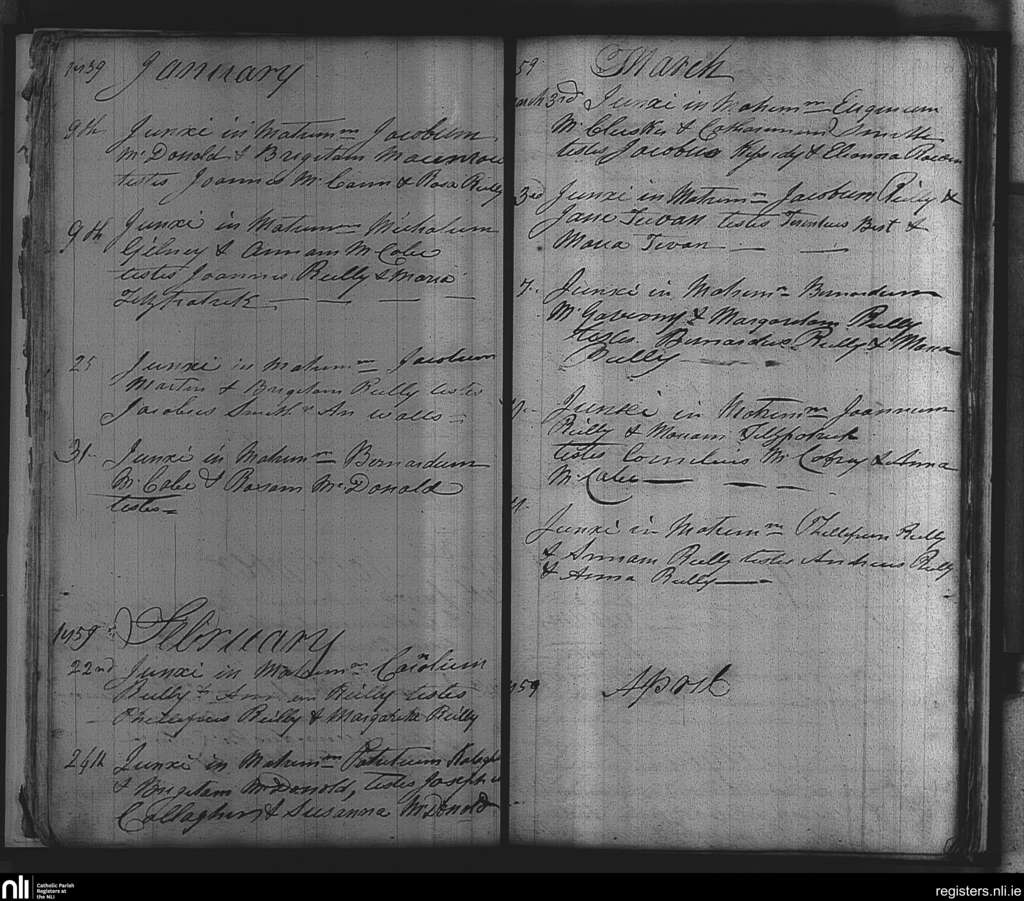 1759 January
9th Junxi in Matrimm Jacobum
McDonald & Brigitam
testes Joannes McCann & Rosa Reilly
9th Junxi in Matrimm Michalum
Gilney & Annam McCabe
testes Joannes Reilly & Maria
Fitzpatrick
25 Junxi in Matrimm Jacobum
Martin & Brigitam Reilly testes
Jacobus Smith & An walls
31 Junxi in Matrimm Bernardum
McCabe & Rosam McDonald
testes
1759 February
22nd Junxi in Matrimm Carolum
Reilly & Annam Reilly testes
Phillipus Reilly & Margarita Reilly
24th Junxi in Matrimm Patritium
& Brigitam McDonald, testes Joseph
Callaghan & Susanna McDonald
59 March
March 3rd Junxi in Matrimm Eugenium
McCluskey & Catharinam Smith
testes Jacobus & Elenora
3rd Junxi in Matrimm Jacobum Reily &
Jane testes Terentius Best &
Maria
7. Junxi in Matrimm Bernardum
& Margaretam Reilly
testes Bernardus Reilly & Maria
Reilly
Junxi in Matrimm Joannem
Reilly & Mariam Fitzpatrick
testes Cornelius & Anna
McCabe
Junxi in Matrimm Phillipum Reilly
& Annam Reilly testes Andreas Reilly
& Anna Reilly
1759 April
nli
Catholic Parish
Registers at
the NLI
registers.nli.ie